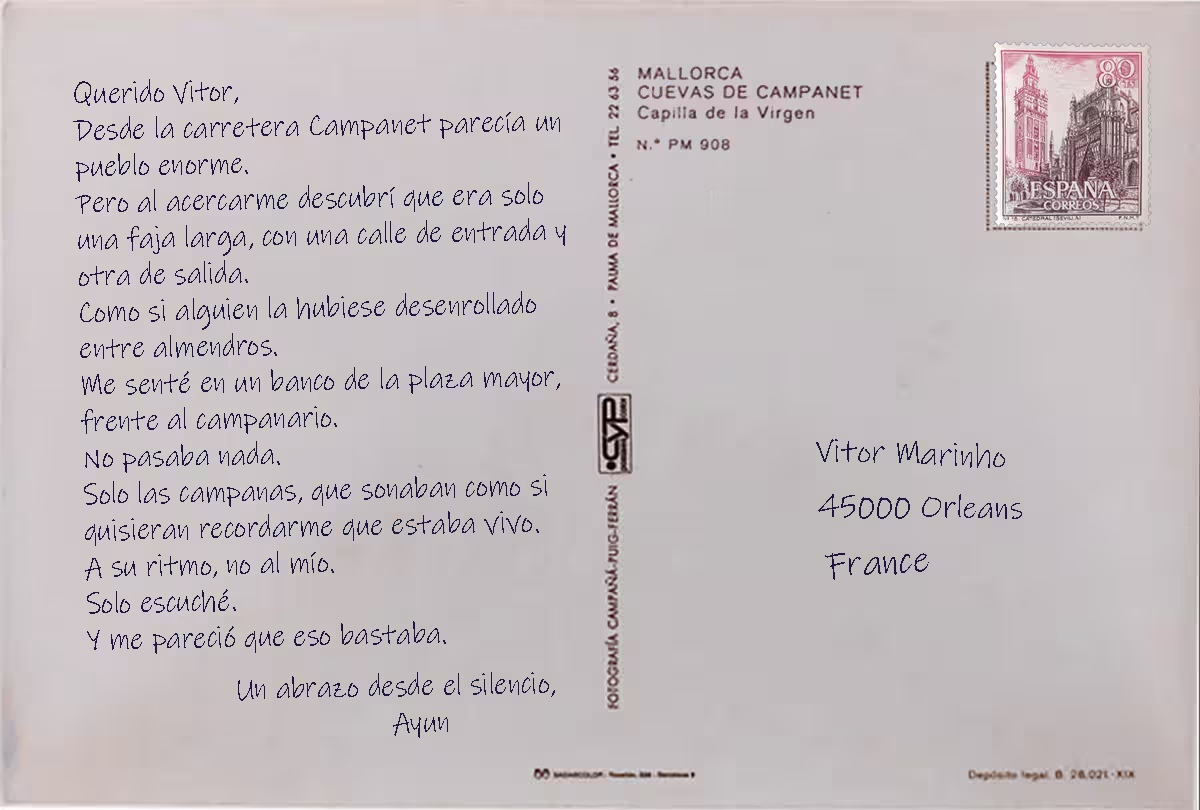 Querido Vitor,
Desde la carretera Campanet parecía un
pueblo enorme.
Pero al acercarme descubrí que era solo
una faja larga, con una calle de entrada y
otra de salida.
Como si alguien la hubiese desenrollado
entre almendros.
Me senté en un banco de la plaza mayor,
frente al campanario.
No pasaba nada.
Solo las campanas, que sonaban como si
quisieran recordarme que estaba vivo.
A su ritmo, no al mío.
Solo escuché.
Y me pareció que eso bastaba.
Un abrazo desde el silencio,
Ayun
FOTOGRAFÍA CAMPAÑÁ-PUIG-FERRÁN
CYP
CERDAÑA, 8 • PALMA DE MALLORCA • TEL. 22 63 36
MALLORCA
CUEVAS DE CAMPANET
Capilla de la Virgen
N.° PM 908
80
ESPAÑA
CORREOS
CATEDRAL (SEVILLA)
F.N.M.T.
Vitor Marinho
45000 Orleans
France
Depósito legal, B. 28.021-XIX